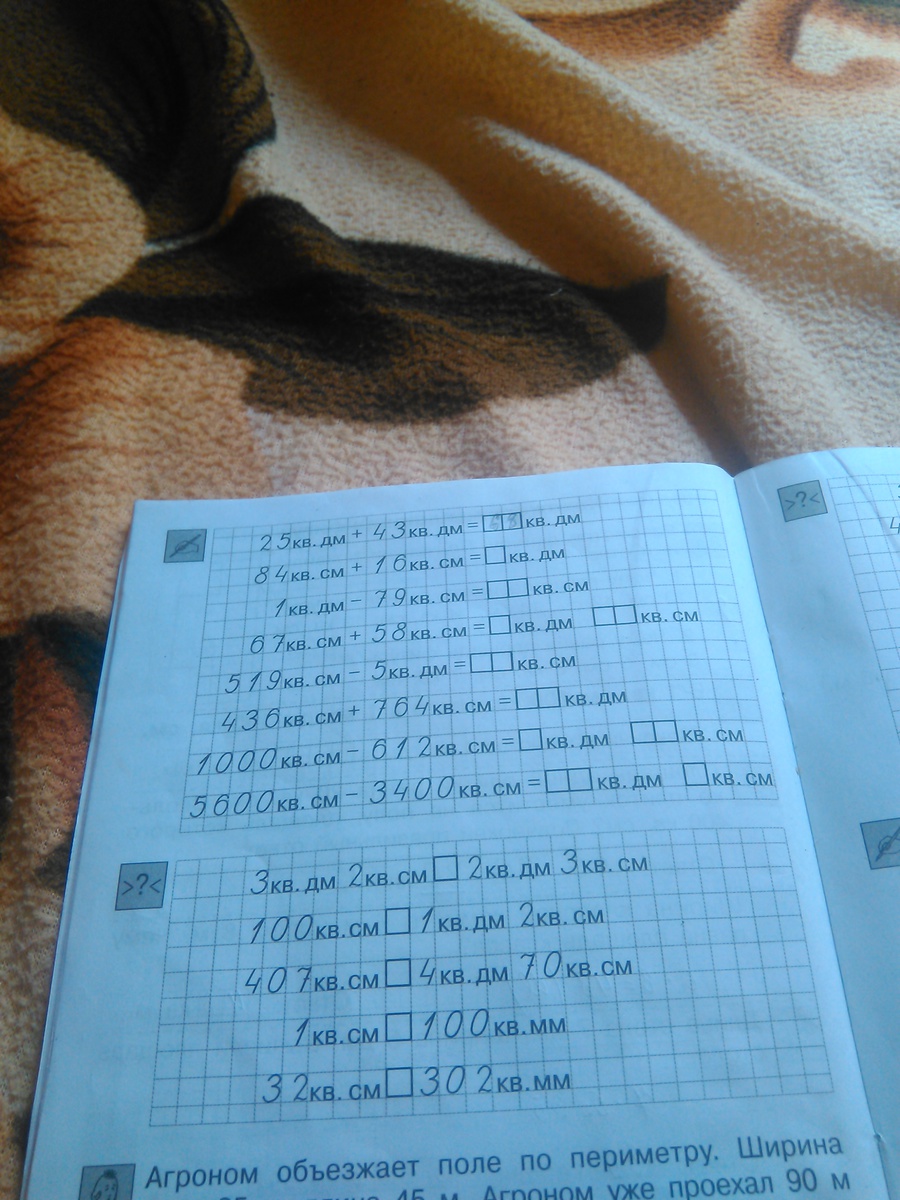 25кв. дм + 43кв. дм = □□ кв. дм
84кв. см + 16кв. см = □кв. дм
1кв. дм − 79кв. см = □□ кв. см
67кв. см + 58кв. см = □кв. дм □□кв. см
519кв. см − 5кв. дм = □□ кв. см
436кв. см + 764кв. см = □□кв. дм
1000кв. см − 612кв. см = □кв. дм □□кв. см
5600кв. см − 3400кв. см = □□кв. дм □кв. см
>?<
3кв. дм 2кв. см □ 2кв. дм 3кв. см
100кв. см □ 1кв. дм 2кв. см
407кв. см □ 4кв. дм 70кв. см
1кв. см □ 100кв. мм
32кв. см □ 302кв. мм
Агроном объезжает поле по периметру. Ширина
45 м. Агроном уже проехал 90 м
>?<